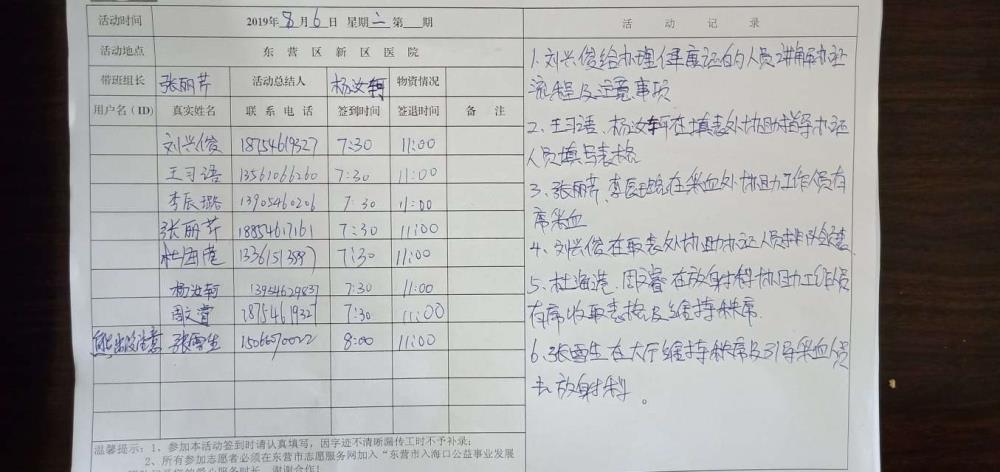 活动时间 2019年8月6日 星期二 第 期
活动地点 东营区新区医院
带班组长 张丽芹 活动总结人 杨汝轲 物资情况
用户名(ID) 真实姓名 联系电话 签到时间 签退时间 备注
刘兴俊 18754619327 7:30 11:00
王习语 13561066260 7:30 11:00
李辰璐 13905460206 7:30 11:00
张丽芹 18854617161 7:30 11:00
杜海港 13361513997 7:30 11:00
杨汝轲 13954629837 7:30 11:00
周文 1875461932 7:30 11:00
注意 张雪生 8:00 11:00
温馨提示:1、参加本活动签到时请认真填写,因字迹不清晰漏传工时不予补录;
2、所有参加志愿者必须在东营市志愿服务网加入“东营市入海口公益事业发展
谢谢合作!
活动记录
1.刘兴俊给办理健康证的人员讲解办证
流程及注意事项
2、王习语、杨汝轲在填表处协助指导办证
人员填写表格
3、张丽芹、李辰璐在采血处协助工作人员有
序采血
4、刘兴俊在取表处协助办证人员排队
5、杜海港、周文睿在放射科协助工作人员
有序收取表格及维持秩序.
6、张雪生在大厅维持秩序及引导采血人员
去放射科。